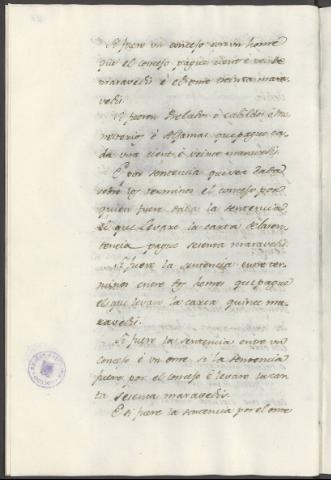 Si fuere un concejo con un home
que el concejo pague ciento e veinte
maravedis e el ome treinta mara-
vedis.
Si fueren Prelados o cabildos o Mo-
nasterios o Aljamas que pague ca-
da una ciento e veinte maravedis.
E por sentencia que sea dada
sobre los terminos el concejo por
quien fuere dada la sentencia
el que levare la carta de la sen-
tencia pague sesenta maravedis.
Si fuere la sentencia entre ter-
minos entre homes que pague
el que levare la carta quince ma-
ravedis.
Si fuere la sentencia entre un
concejo e un ome, si la sentencia
fuere por el concejo e levare la car-
ta sesenta maravedis.
E si fuere la sentencia por el ome